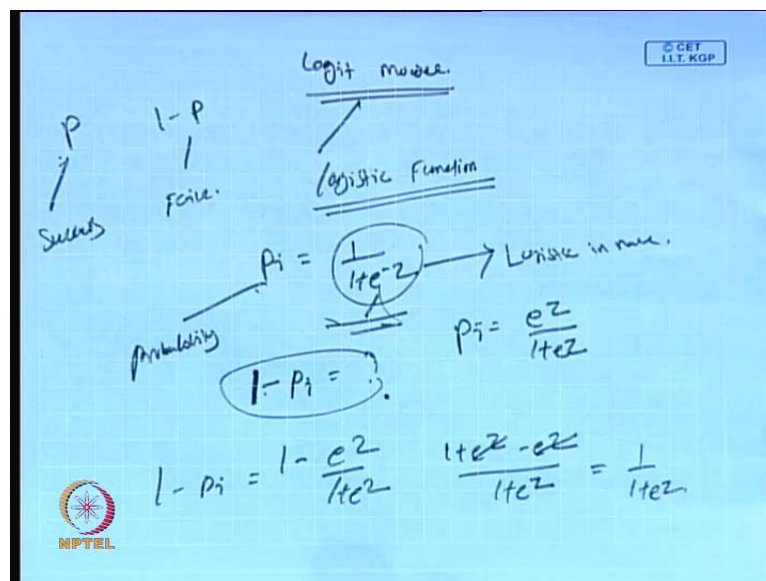 Logit model.
© CET
I.I.T. KGP
P 1 - P
Success Failure.
Logistic Function
Pi = 1/(1+e^-z) → Logistic in nature.
Probability
Pi = e^z/(1+e^z)
1 - Pi = ?
1 - Pi = 1 - e^z/(1+e^z) (1+e^z - e^z)/(1+e^z) = 1/(1+e^z).
NPTEL